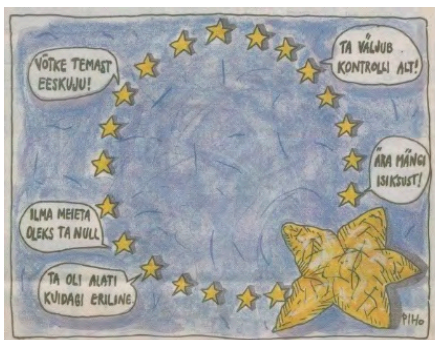 VÕTKE TEMAST
EESKUJU!
TA VÄLJUB
KONTROLLI ALT!
ÄRA MÄNGI
ISIKSUST!
ILMA MEIETA
OLEKS TA NULL
TA OLI ALATI
KUIDAGI ERILINE.
PIHO